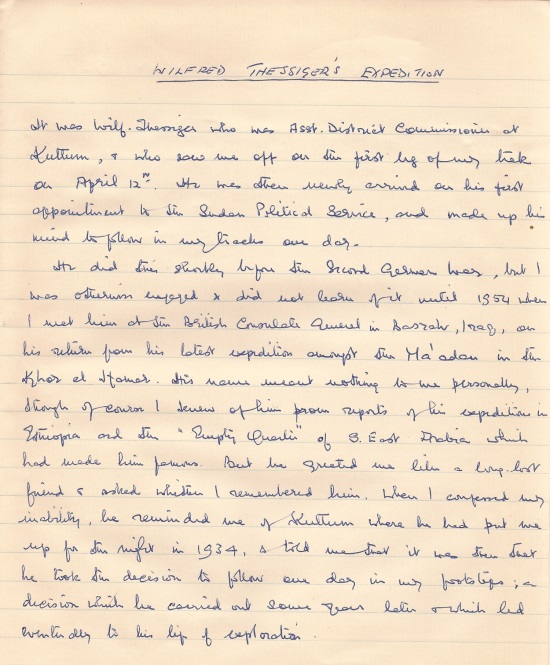 WILFRED THESSIGER'S EXPEDITION
It was Wilf. Thessiger who was Asst. District Commissioner at
Kuttum, & who saw me off on the first leg of my trek
on April 12th. He was then newly arrived on his first
appointment to the Sudan Political Service, and made up his
mind to follow in my tracks one day.
He did this shortly before the Second German War, but I
was otherwise engaged & did not learn of it until 1954 when
I met him at the British Consulate General in Basrah, Iraq, on
his return from his latest expedition amongst the Ma'adan in the
Khor el Hamar. His name meant nothing to me personally,
though of course I knew of him from reports of his expedition in
Ethiopia and the "Empty Quarter" of S. East Arabia which
had made him famous. But he greeted me like a long-lost
friend & asked whether I remembered him. When I confessed my
inability, he reminded me of Kuttum where he had put me
up for the night in 1934, & told me that it was then that
he took the decision to follow one day in my footsteps; a
decision which he carried out some years later & which led
eventually to his life of exploration.